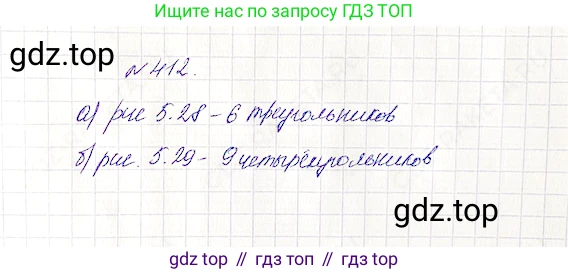 Ищите нас по запросу ГДЗ ТОП
gdz.top
№412.
а) рис 5.28 - 6 треугольников
б) рис. 5.29 - 9 четырёхугольников
gdz.top
gdz.top // гдз топ // гдз.top